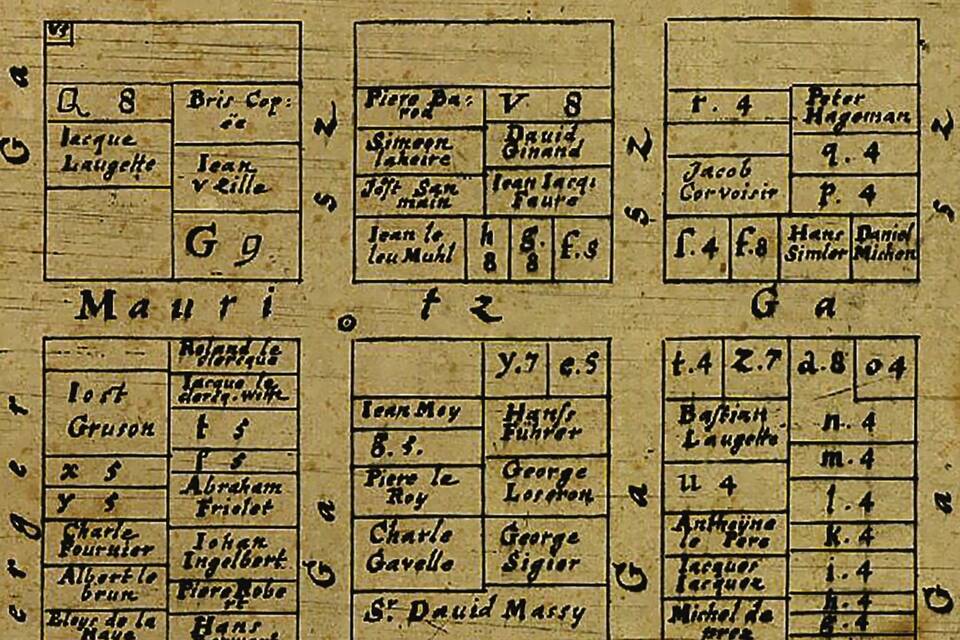 Q 8
Iacque
Laugette
Bris Cop:
ée
Iean
v Lille
G g
Piere Ba:
rea
V. 8
Simeon
lakeire
David
Ginand
Jost San
main
Iean Iacq:
Faure
Iean le
leu Muhl
h
8
g.
8
f.s
r. 4
Peter
Hageman
q. 4
Jacob
Corvoisir
p. 4
f.4
f.8
Hans
Simler
Daniel
Michon
G a
s z
s z
s z
Mauri
o
t z
G a
Roland le
clercque
Iost
Gruson
Iacque le
clercq. witte
t s
x s
f s
y s
Abraham
Friolet
Charle
Fournier
Iohan
Ingelbert
Albert le
brun
Piere Robe
rt
Eloys de la
Haye
Hans
y.7
e.5
Iean Moy
Hanss
Führer
g. s.
Piere le
Roy
George
Loseron
Charle
Gavelle
George
Sigier
Sr. David Massy
t.4
Z.7
d.8
o 4
Bastian
Laugette
n. 4
m. 4
u 4
l. 4
Antheüne
le Pere
k. 4
Iacques
Iacques
i. 4
h. 4
Michel de
prez
g. 4
G a
G a
G a